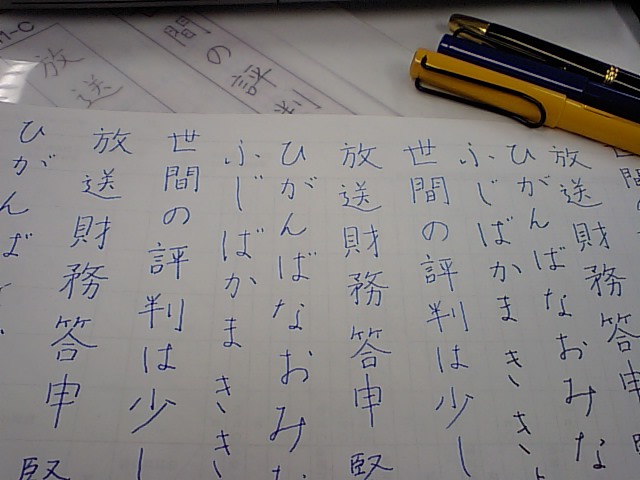 間の評判
放送
世間の
放送財務答申
ひがんばなおみな
ふじばかまきき
世間の評判は少し
放送財務答申
ひがんばなおみな
ふじばかまきき
世間の評判は少し
放送財務答申
ひがんば